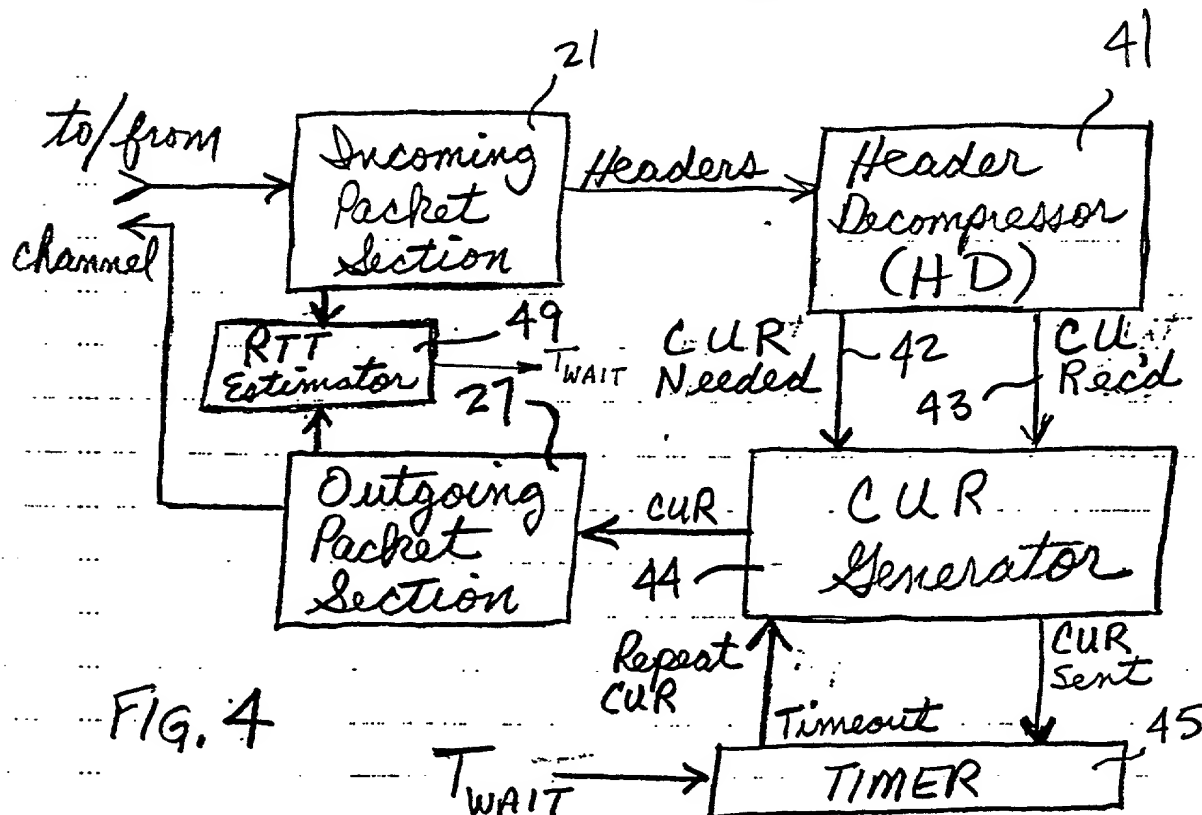 21
41
to/from
channel
Incoming
Packet
Section
Headers
Header
Decompressor
(HD)
RTT
Estimator
49
TWAIT
27
CUR
Needed
42
43
CU
Rec'd
Outgoing
Packet
Section
CUR
44
CUR
Generator
Repeat
CUR
Timeout
CUR
Sent
45
FIG. 4
TWAIT
TIMER